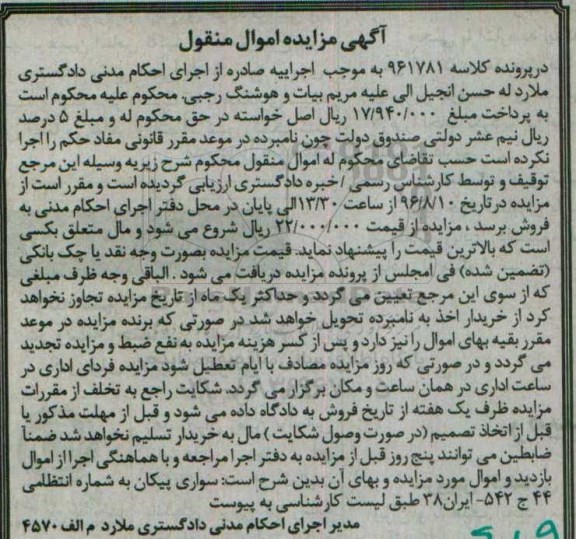 آگهی مزایده اموال منقول
درپرونده کلاسه ۹۶۱۷۸۱ به موجب اجراییه صادره از اجرای احکام مدنی دادگستری
ملارد له حسن انجیل الی علیه مریم بیات و هوشنگ رجبی. محکوم علیه محکوم است
به پرداخت مبلغ ۱۷/۹۴۰/۰۰۰ ریال اصل خواسته در حق محکوم له و مبلغ ۵ درصد
ریال نیم عشر دولتی صندوق دولت چون نامبرده در موعد مقرر قانونی مفاد حکم را اجرا
نکرده است حسب تقاضای محکوم له اموال منقول محکوم شرح زیربه وسیله این مرجع
توقیف و توسط کارشناس رسمی /خبره دادگستری ارزیابی گردیده است و مقرر است از
مزایده درتاریخ ۹۶/۸/۱۰ از ساعت ۱۳/۳۰الی پایان در محل دفتر اجرای احکام مدنی به
فروش برسد ، مزایده از قیمت ۲۲/۰۰۰/۰۰۰ ریال شروع می شود و مال متعلق بکسی
است که بالاترین قیمت را پیشنهاد نماید. قیمت مزایده بصورت وجه نقد یا چک بانکی
(تضمین شده) فی امجلس از پرونده مزایده دریافت می شود . الباقی وجه ظرف مبلغی
که از سوی این مرجع تعیین می گردد و حداکثر یک ماه از تاریخ مزایده تجاوز نخواهد
کرد از خریدار اخذ به نامبرده تحویل خواهد شد. در صورتی که برنده مزایده در موعد
مقرر بقیه بهای اموال را نیز دارد و پس از کسر هزینه مزایده به نفع ضبط و مزایده تجدید
می گردد و در صورتی که روز مزایده مصادف با ایام تعطیل شود مزایده فردای اداری در
ساعت اداری در همان ساعت و مکان برگزار می گردد. شکایت راجع به تخلف از مقررات
مزایده ظرف یک هفته از تاریخ فروش به دادگاه داده می شود و قبل از مهلت مذکور یا
قبل از اتخاذ تصمیم (در صورت وصول شکایت ) مال به خریدار تسلیم نخواهد شد ضمناً
ضابطین می توانند پنج روز قبل از مزایده به دفتر اجرا مراجعه و با هماهنگی اجرا از اموال
بازدید و اموال مورد مزایده و بهای آن بدین شرح است: سواری پیکان به شماره انتظلمی
۴۴ ج ۵۴۲- ایران۳۸ طبق لیست کارشناسی به پیوست
مدیر اجرای احکام مدنی دادگستری ملارد م الف ۴۵۷۰